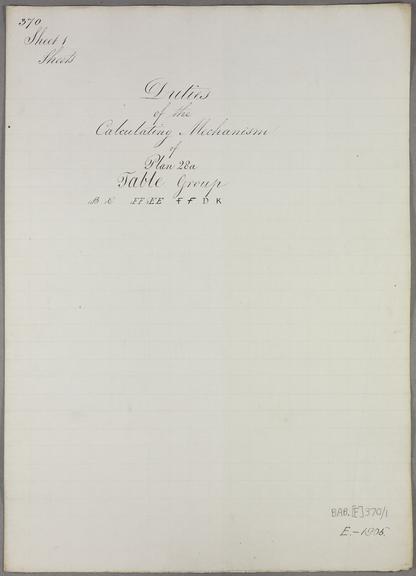 370
Sheet 1
Sheets
Duties
of the
Calculating Mechanism
of
Plan 28a
Table Group
FF EE F F D K
BAB. [F] 370/1
E.-1905.